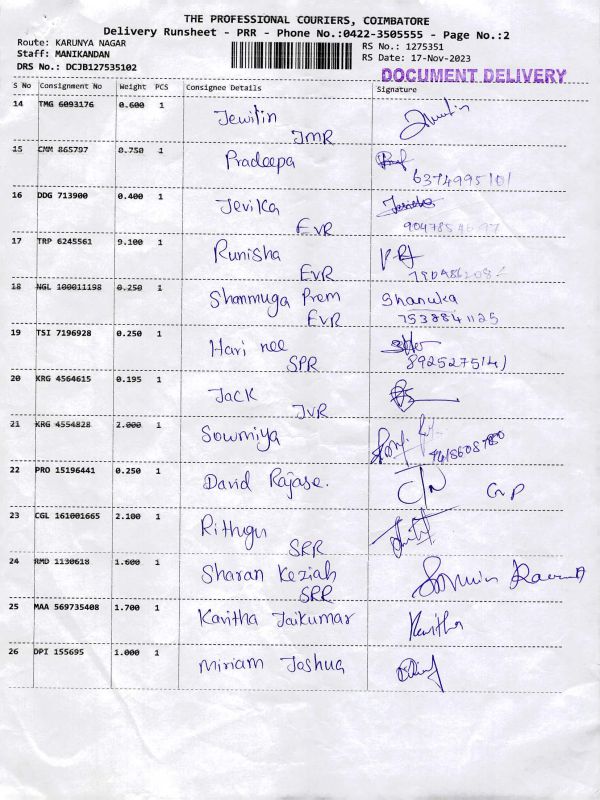 THE PROFESSIONAL COURIERS, COIMBATORE
Delivery Runsheet - PRR - Phone No.:0422-3505555 - Page No.:2
Route: KARUNYA NAGAR
RS No.: 1275351
Staff: MANIKANDAN
RS Date: 17-Nov-2023
DRS No.: DCJB127535102
DOCUMENT DELIVERY
S No Consignment No Weight PCS Consignee Details Signature
14 TMG 6093176 0.600 1
Jewitin
JMR
15 CMM 865797 0.750 1
Pradeepa
6374995101
16 DDG 713900 0.400 1
Jevika
EVR
17 TRP 6245561 9.100 1
Runisha
EVR
18 NGL 100011198 0.250 1
Shanmuga Prem Shanuka
EVR 7538841125
19 TSI 7196928 0.250 1
Hari nee
SPR
20 KRG 4564615 0.195 1
Jack
JVR
21 KRG 4554828 2.000 1
Sowmiya
22 PRO 15196441 0.250 1
David Rajase.
23 CGL 161001665 2.100 1
Rithugu
SRR
24 RMD 1130618 1.600 1
Sharan Keziah
SRR
25 MAA 569735408 1.700 1
Kavitha Jaikumar Kavitha
26 DPI 155695 1.000 1
Miriam Joshua